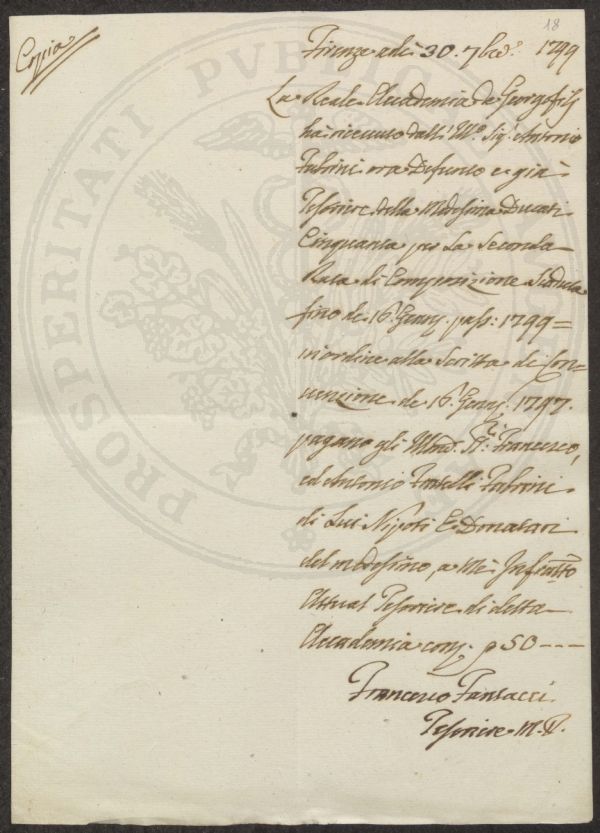 18
Copia
Firenze adi 30. 7bre. 1799
La Reale Accademia de Georgofili
ha ricevuto dall' Ill.º Sig.r Antonio
Fabrini ora Defunto e già
Tesoriere della Medesima Ducati
Cinquanta per La Seconda
Rata di Composizione Scaduta
fino de 16. Genn. pass: 1799 =
in ordine alla Scritta di Con-
venzione de 16. Genn. 1797.
pagano gli SS.ri Francesco,
ed Antonio Fratelli Fabrini
di Lui Nipoti E Donatari
del medesimo, a Me Infratto
Attual Tesoriere di detta
Accademia 50 ---
Francesco Pansacci
Tesoriere M. P.
PROSPERITATI PUBLICAE AUGENDAE